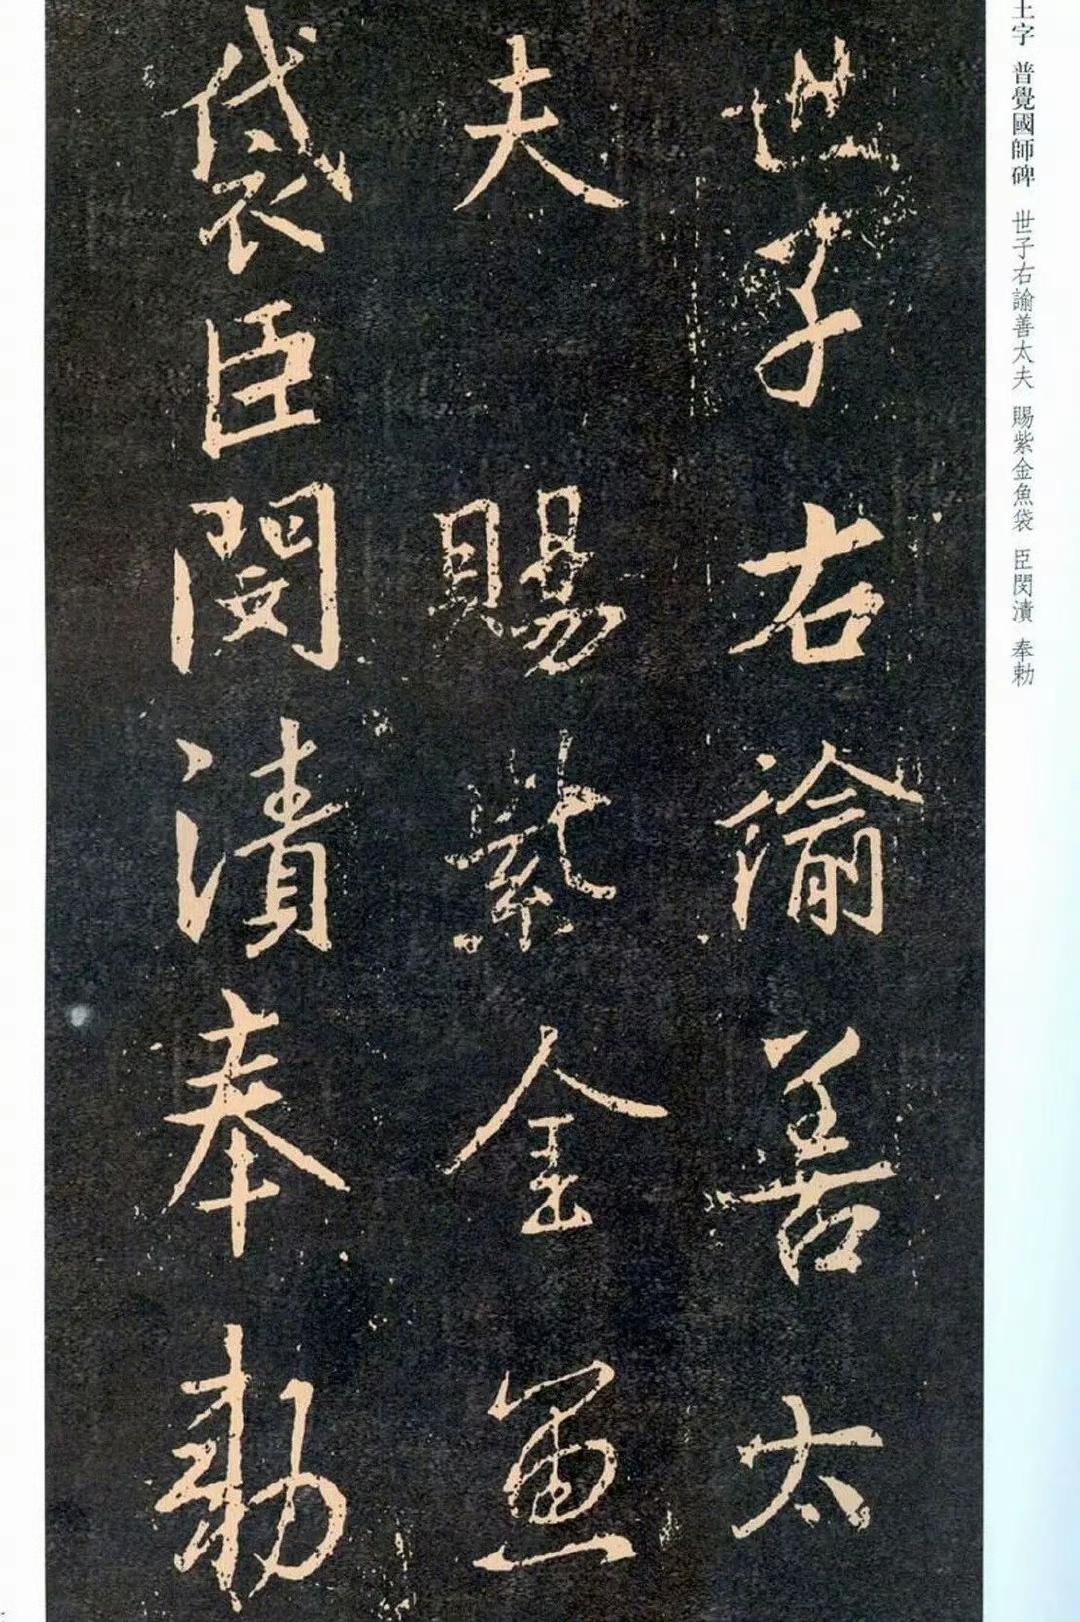 世子右諭善太
夫賜紫金魚
袋臣閔漬奉勅
字 普覺國師碑 世子右諭善太夫 賜紫金魚袋 臣閔漬 奉勅